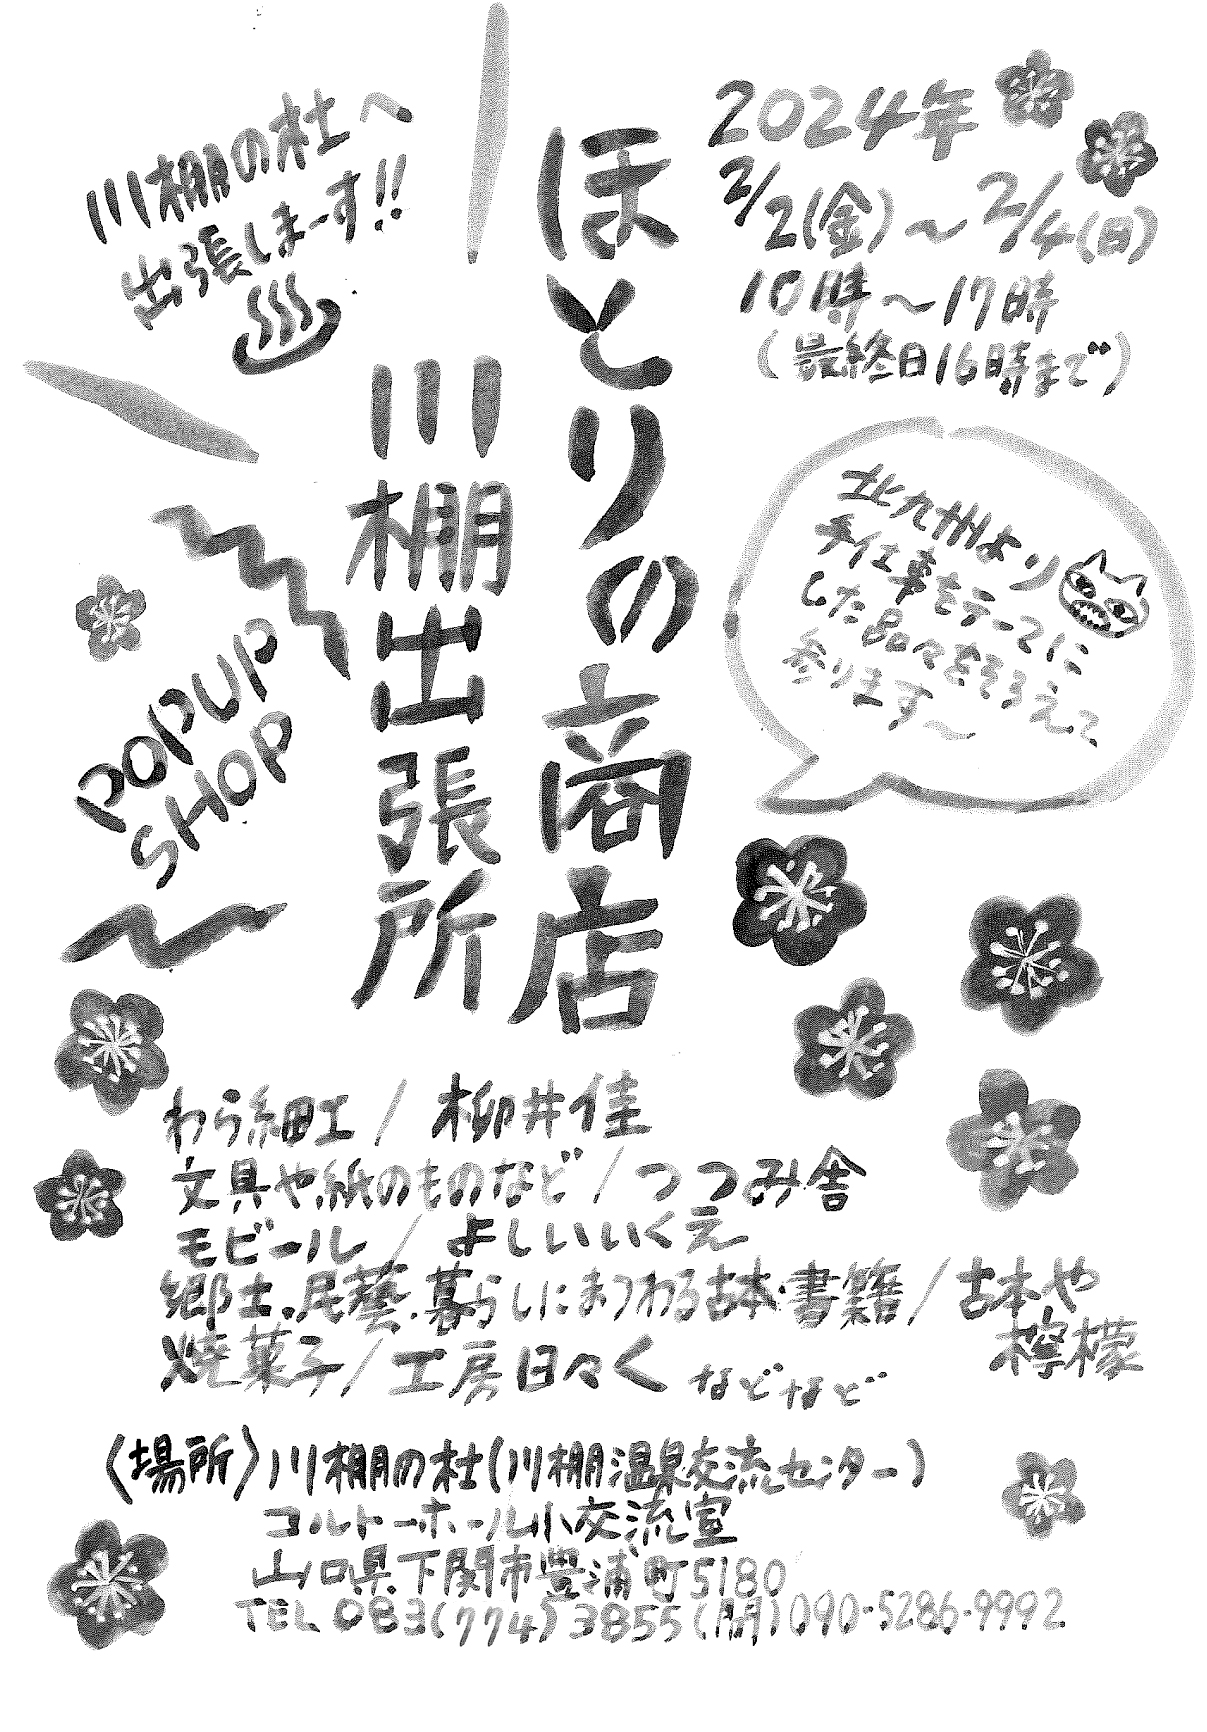 川棚の杜へ
出張しまーす!!
2024年
2/2(金)〜2/4(日)
10時〜17時
(最終日16時まで)
ほとりの商店
川棚出張所
北九州より
手仕事をテーマに
した品々をそろえて
参ります〜
POPUP
SHOP
わら細工/柳井佳
文具や紙のものなど/つつみ舎
モビール/よしいいくえ
郷土・民藝・暮らしにまつわる古本・書籍/古本や
檸檬
焼菓子/工房日々く などなど
〈場所〉川棚の杜(川棚温泉交流センター)
コルトーホール小交流室
山口県下関市豊浦町5180
TEL 083(774)3855(開)090-5286-9992